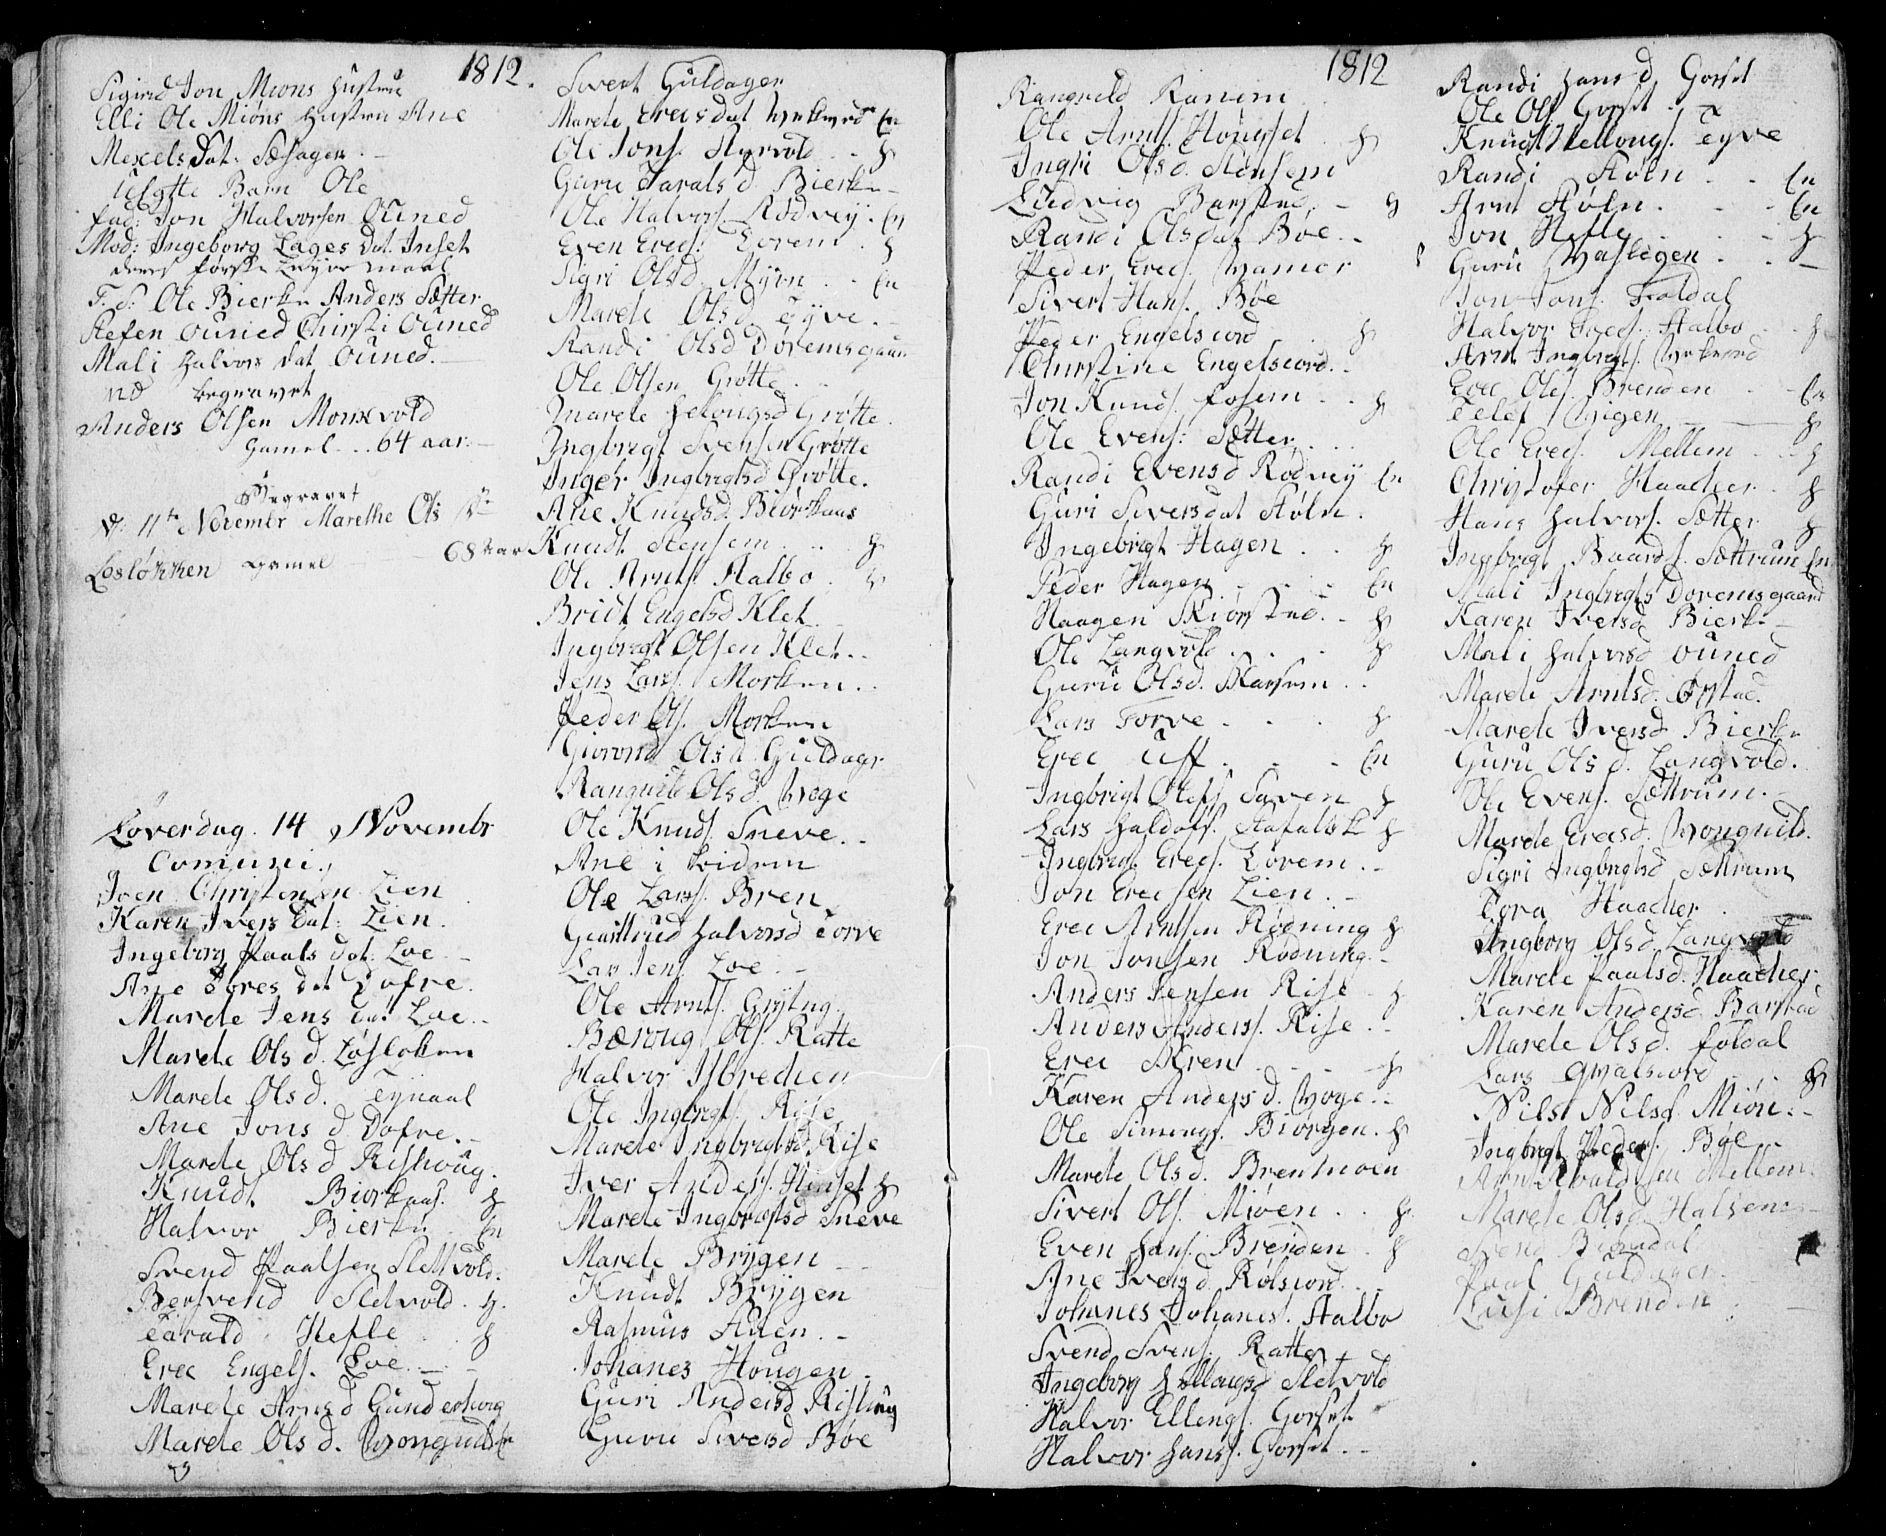 1812.
Sigrid Jon Mions Hustru
Elli Ole Miøns Hustru Ane
Mexels Dat. Sæhagen
Uegtte Barn Ole
fad: Jon Halvorsen Ouned
Mod: Ingeborg Lages Dat. Inset
deres første Leyermaal
F. S: Ole Bierke Anders Sætter
Stefen Ouned Chirsti Ouned
Mali Halvors Dat Ouned.
begravet
Anders Olsen Monxvold
Gamel 64 aar.
Begravet
d: 11te November Marethe Ols
Losløkken Gamel 68 Aar
Løverdag. 14 Novembr
Comuni.
Iven Christensen Lien
Karen Ivers Dat: Lien.
Ingeborg Paals Dat. Loe.
Ane Tores dat Dofre.
Marele Jens dat Loe.
Marele Ols d. Løsloken
Marele Ols d. Tynaal
Ane Jons d Dofre.
Marele Ols d Rishoug.
Knudt Biørkaas. H
Halvor Bierke En
Svend Paalsen Sletvold.
Bersvend Sletvold. H.
Tarald Hefle H
Erec Engels. Loe.
Marele Arns d Gunderhoug
Marele Ols d. Wongulsli
Sivert Guldager
Marele Erecsdat En
Ole Jons. Myrvold H
Guru Taralsd. Bierke
Ole Halvors. Rødvey. En
Even Erecs. Lorem. H
Sigri Olsd. Myrn. En
Marele Olsd Tyve.
Randi Olsd Doremsgaun
Ole Olsen Grøtte.
Marele Helougsd Grøtte.
Ingbregt Svensen Grøtte
Inger Ingbregtsd Grøtte.
Ane Knudsd. Biørkaas
Knudt Stensem. H
Ole Arnts. Aalbo. H
Bridt Engelsd Klet.
Ingbregt Olsen Klet.
Jens Lars. Morken.
Peder Ols. Morken
Giørond Ols d Guldager
Rangnild Olsd Woge
Ole Knuds. Sneve.
Ane i bidem
Ole Lars. Bren.
Giærttrud Halvorsd Torve
Lars Jens. Loe.
Ole Arnts. Gryting.
Bæroug Ols. Ratte
Halvor Isbrecken
Ole Ingbregts. Rise
Marele Ingbregtsd. Rise
Iver Anders. Hinset H
Marele Ingbregtsd Sneve
Marele Brygen
Knudt Brygen
Rasmus Auen.
Johanes Hougen.
Guri Andersd Rishoug
Guru Siversd Bøe
1812
Rangnild Ranem
Ole Arnts. Hougset H
Ingri Olsd. Stensem
Ludvig Barstad. H
Randi Olsdat Boe.
Peder Erecs. Wamer
Sivert Hans. Bøe
Peder Engelsiord H
Christine Engelsiord.
Jon Knuds. Fosem. H
Ole Evens: Sætter.
Randi Evensd Rødvey En
Guri Siversdat Støln.
Ingebrigt Hagen H
Peder Hagen En
Haagen Skiørstad. H
Ole Langvold. H
Guru Olsd. Skarsem.
Lars Torve. H
Erec Uff. En
Ingbrigt Olefs. Saven H
Lars Haldofs. H
Ingbregt Erecs. Lorem.
Jon Erecsen Lien.
Erec Arntsen Rødning H
Jon Jonsen Rodning.
Anders Jensen Rise H
Anders Anders. Rise.
Erec Kren H
Karen Anders d. Woge.
Ole Simengs. Biørgen. H
Marele Olsd. Brenmoen
Sivert Ols. Miøen. H.
Even Hans. Brenden. H
Ane Iversd Rølsiord.
Johanes Johanes. Aalbo
Svend Svens. Ratte
Ingeborg Hellaugsd Sletvold
Halvor Ellengs. Gorset.
Halvor Hans. Gorset.
Randi Hans d. Gorset
Ole Ols Gorset
Knudt Hellougs. Tyve
Randi Støln En
Arnt Støln. En
Jon Hefle H
Guru Wasliegen.
Jon Jons. Foldal
Halvor Aalbo H
Arnt Ingbregts.
Erec Oles. Brenden En
Telef Wigen H
Ole Erecs. Mellem H
Christofer Haacher. H
Hans Halvors. Sætter H
Ingbregt Baards. Sættrum En
Mali Ingbregts Doremsgaard
Karen Iversd. Bierke
Mali Halvorsd Ouned
Marele Arntsd. Ørstad.
Marele Iversd Bierke
Guru Olsd. Langvold.
Ole Evens. Sættrum.
Marele Erecsd. Wongnild.
Sigri Ingbregtsd Sættrum
Tora Haacher.
Ingborg Olsd. Langvold
Marele Paalsd. Haacher,
Karen Andersd. Barstad
Marele Olsd. Foldal
Lars Gwalsiord H
Nils Nilss. Miøn.
Ingbregt Peders. Bøe
Arnt Mellem.
Marele Olsd. Halsene
Svend Biøndal
Paal Guldager.
Lusi Brenden